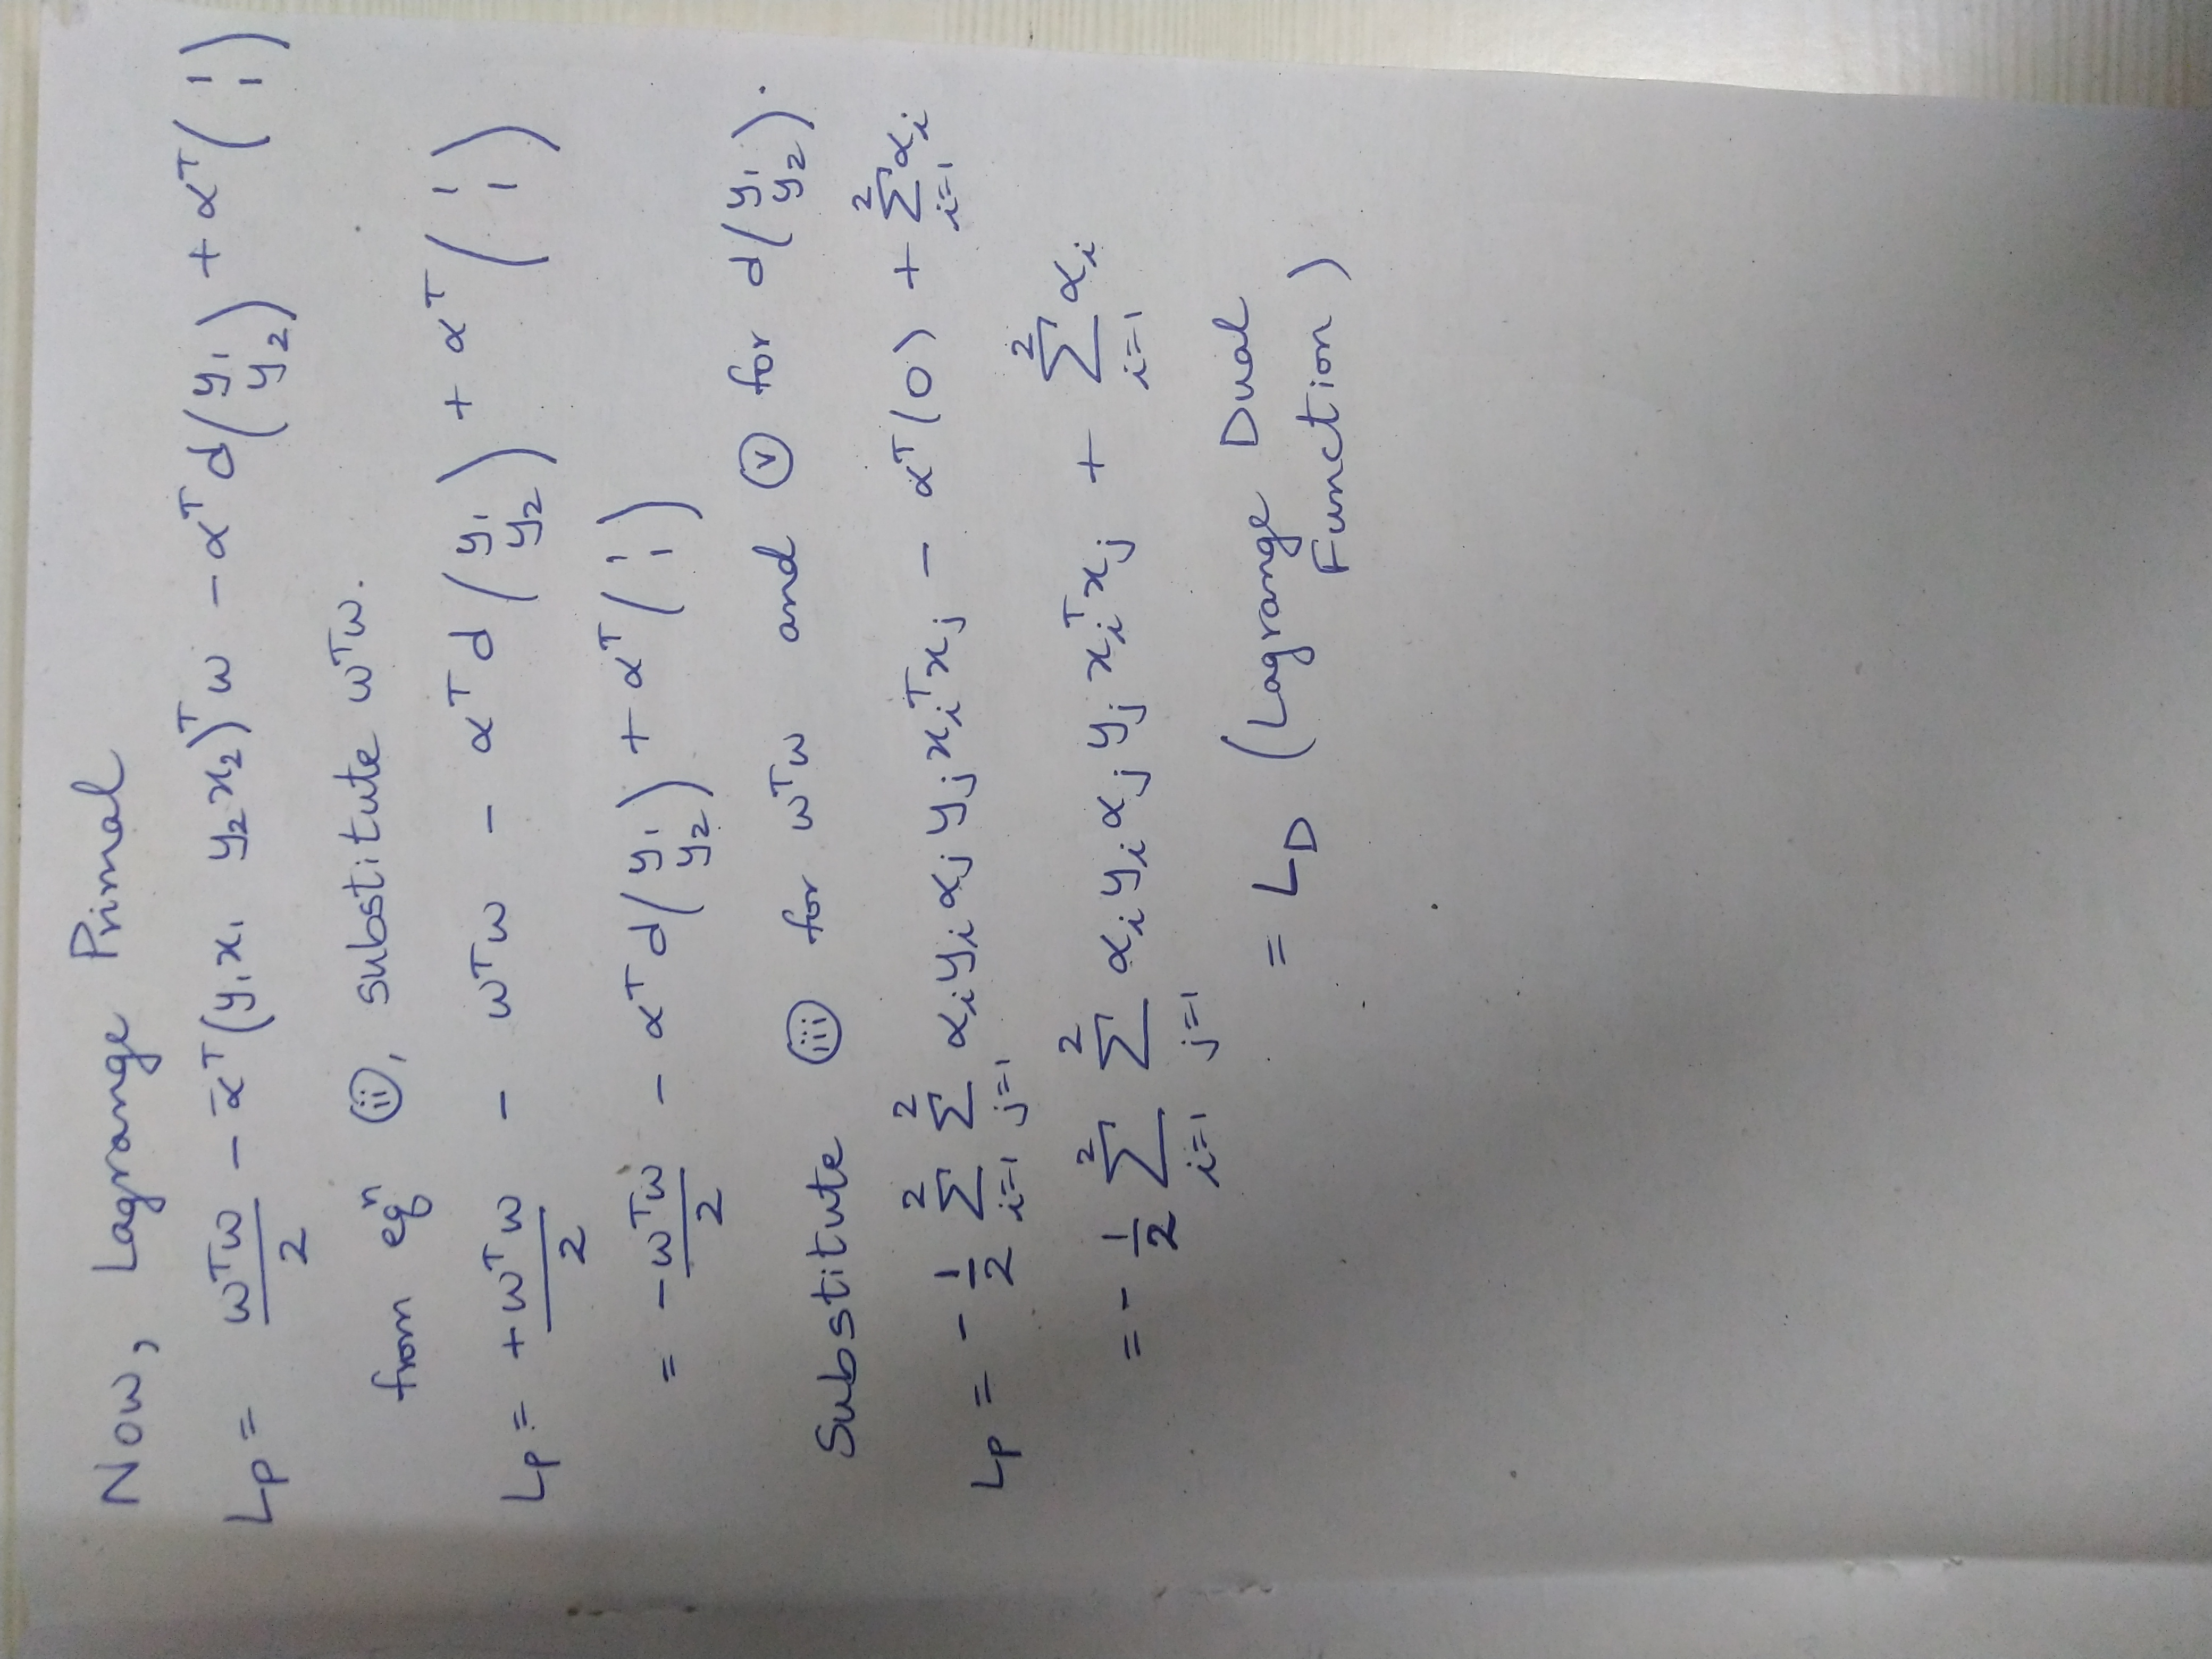 Now, Lagrange Primal
Lp = wᵀw/2 - αᵀ(y₁x₁ y₂x₂)ᵀw - αᵀd(y₁ y₂) + αᵀ(1 1)
from eqⁿ (ii), substitute wᵀw.
Lp = +wᵀw/2 - wᵀw - αᵀd(y₁ y₂) + αᵀ(1 1)
= -wᵀw/2 - αᵀd(y₁ y₂) + αᵀ(1 1)
Substitute (iii) for wᵀw and (v) for d(y₁ y₂).
Lp = -1/2 Σᵢ₌₁² Σⱼ₌₁² αᵢyᵢαⱼyⱼxᵢᵀxⱼ - αᵀ(0) + Σᵢ₌₁² αᵢ
= -1/2 Σᵢ₌₁² Σⱼ₌₁² αᵢyᵢαⱼyⱼxᵢᵀxⱼ + Σᵢ₌₁² αᵢ
= L_D (Lagrange Dual
Function)